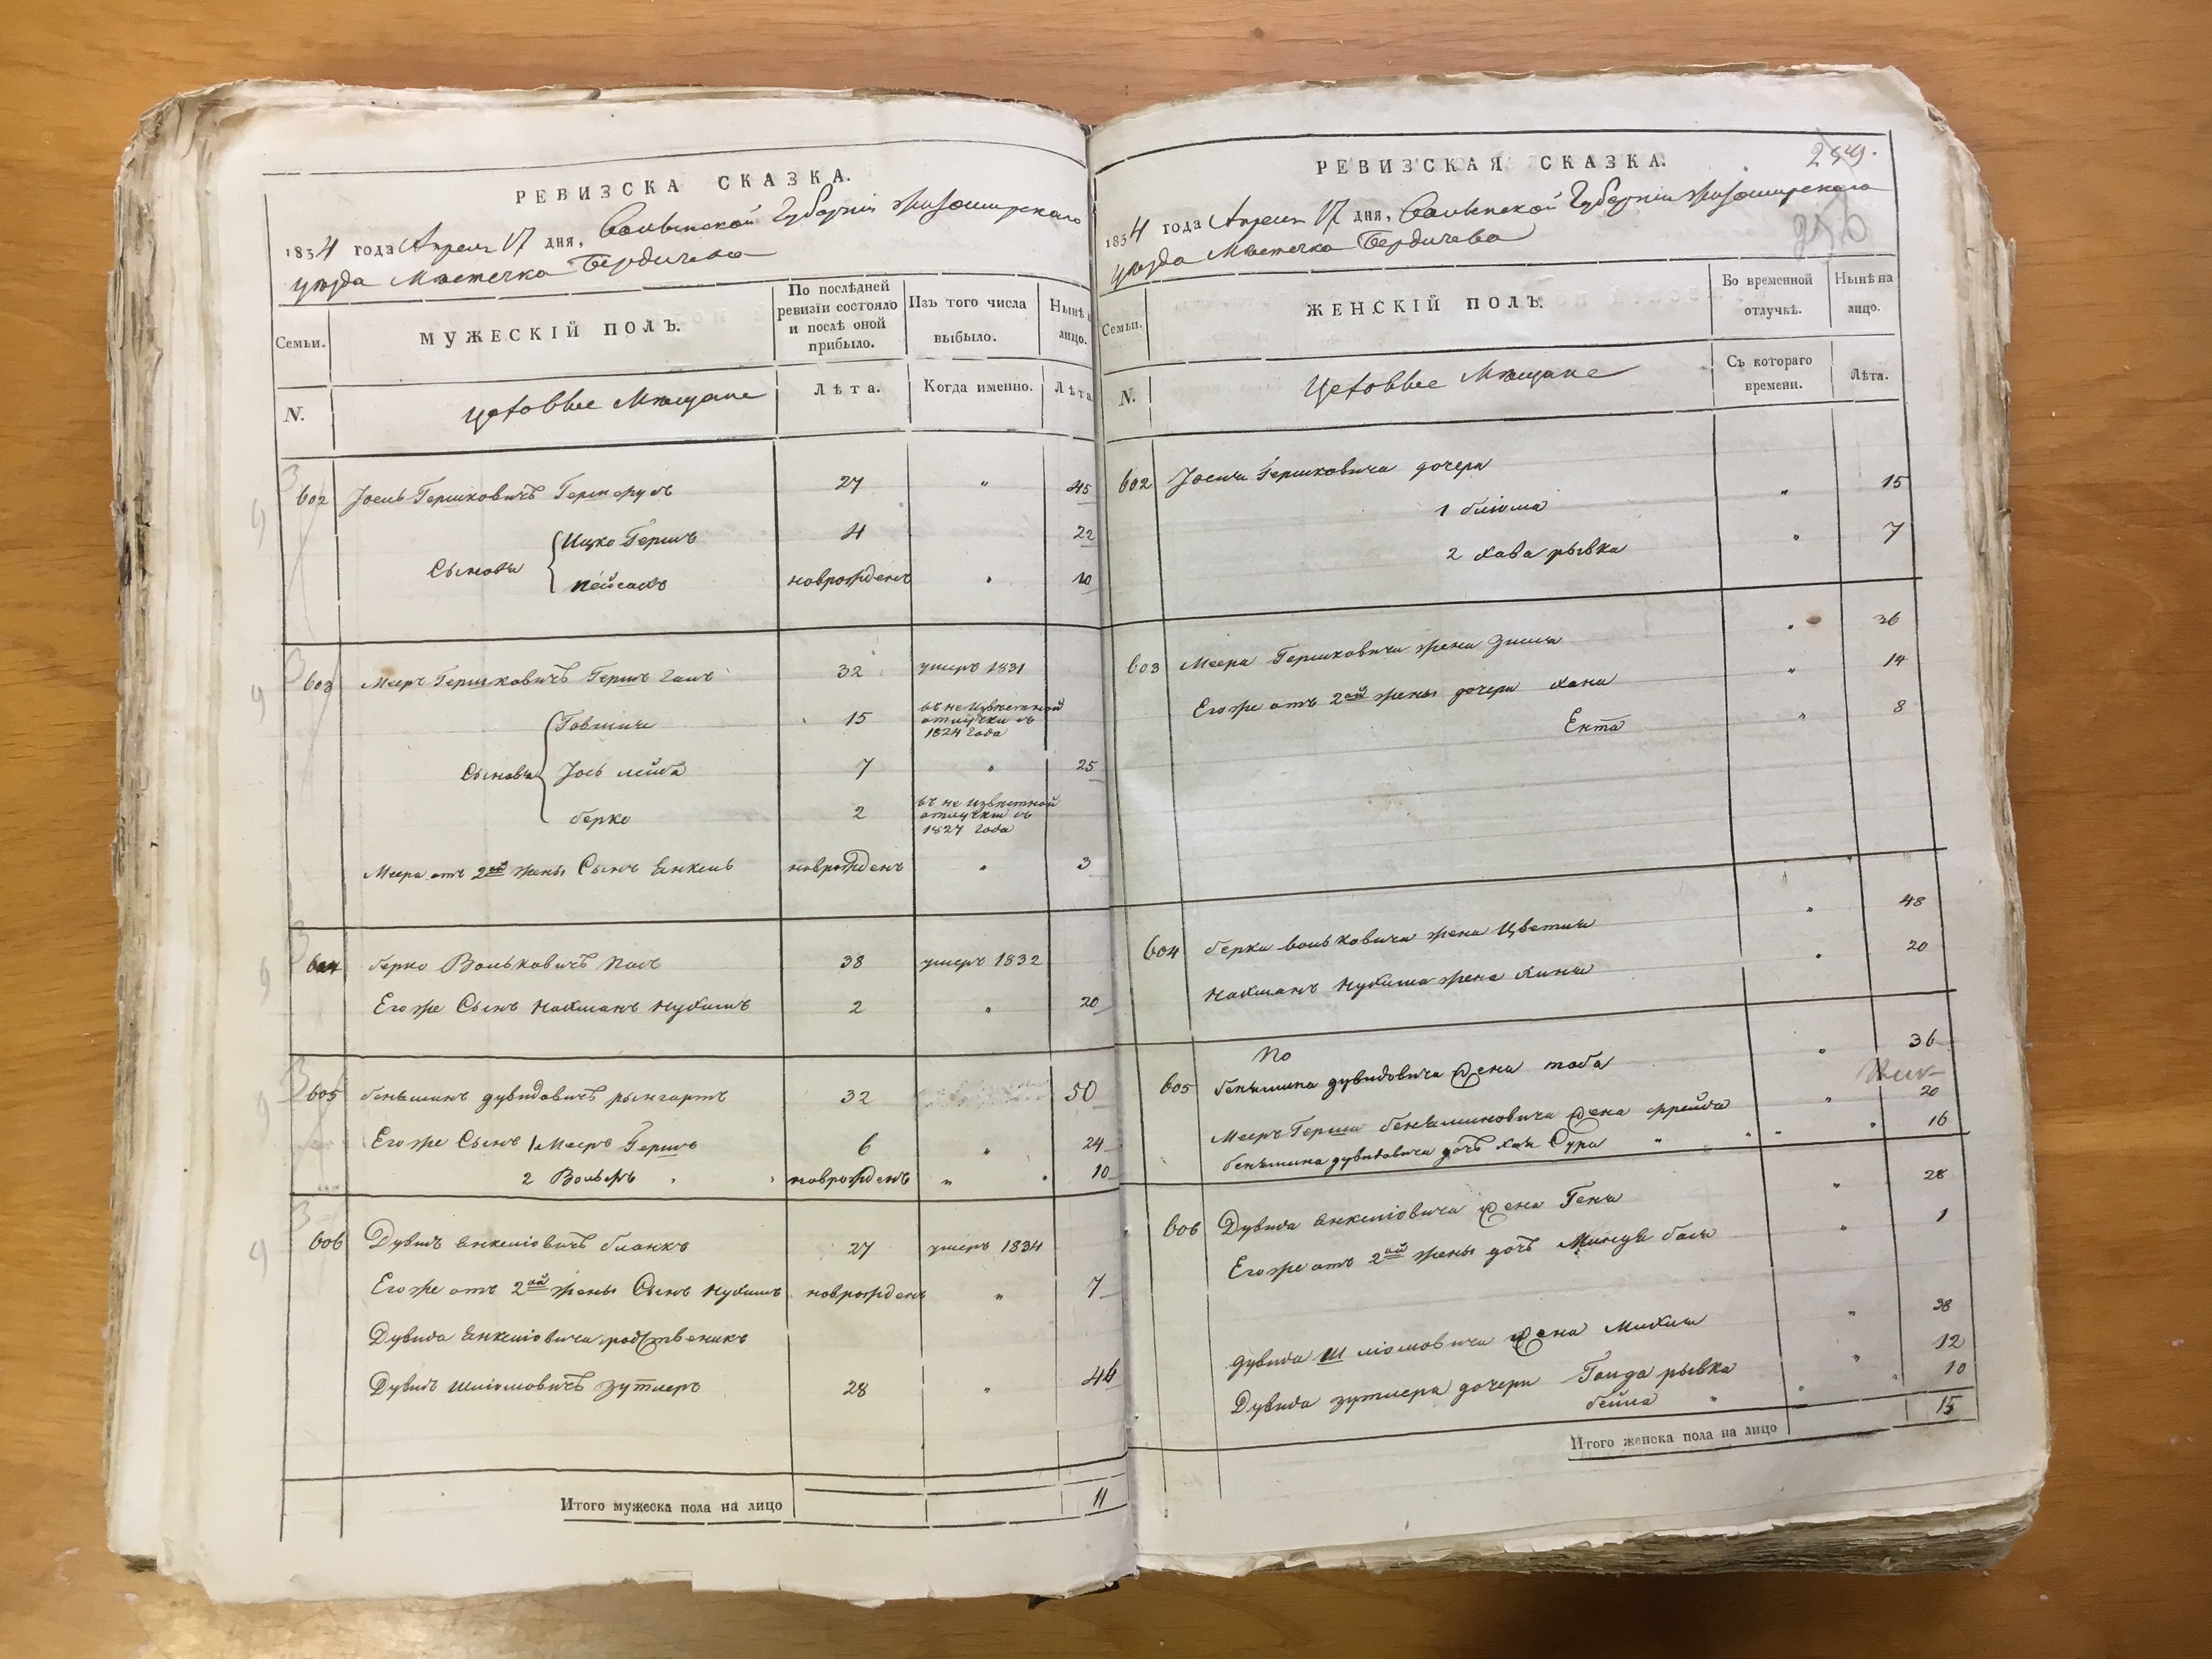 РЕВИЗСКА СКАЗКА.
1834 года Апреля 17 дня, Волынской Губерніи Житомирскаго
уѣзда Мѣстечка Бердичева
Семьи.
МУЖЕСКІЙ ПОЛЪ.
По послѣдней
ревизіи состояло
и послѣ оной
прибыло.
Изъ того числа
выбыло.
Нынѣ н
лицо.
N.
Цеховые Мѣщане
Лѣта.
Когда именно.
Лѣта
602 Іосель Гершковичъ 27 " 45
Сыновья
Ицко Гершъ 4 22
Пейсахъ новорожденъ " 10
603 Мееръ Гершковичъ 32 умеръ 1831
Говшия 15 въ неизвѣстной
отлучки съ
1824 года
Сыновья Іось лейба 7 " 25
берко 2 въ не извѣстной
отлучки съ
1827 года
Меера отъ 2ой жены Сынъ Янкель новорожденъ " 3
604 берко Вольковичъ 38 умеръ 1832
Его же Сынъ Нахманъ Нухимъ 2 " 20
605 беньминъ дувидовичъ рынгартъ 32 50
Его же Сынъ 1 Мееръ Гершъ 6 " 24
2 Вольфъ " новорожденъ " " 10
606 Дувидъ Янкеліовичъ бланкъ 27 умеръ 1834
Его же отъ 2ой жены Сынъ Нухимъ новорожденъ " 7
Дувида Янкеліовича родственикъ
Дувидъ Шліомовичъ зутлеръ 28 " 46
Итого мужеска пола на лицо 11
РЕВИЗСКАЯ СКАЗКА.
259.
1834 года Апреля 17 дня, Волынской Губерніи Житомирскаго
уѣзда Мѣстечка Бердичева
Семьи.
ЖЕНСКІЙ ПОЛЪ.
Во временной
отлучкѣ.
Нынѣ на
лицо.
N.
Цеховые Мѣщане
Съ котораго
времени.
Лѣта.
602 Іоселя Гершковича дочери
1 блюма " 15
2 хава рывка " 7
603 Меера Гершковича жена Зисля " 36
Его же отъ 2ой жены дочери хана " 14
Ента " 8
604 берка вольковича жена Цветля " 48
Нахманъ Нухима жена хиня " 20
605 беньмина дувидовича жена тоба " 36
Мееръ Герша беньминовича жена фрейда " 20
беньмина дувидовича дочь хая Сура " " " " 16
606 Дувида Янкеліовича жена Геня " 28
Его же отъ 2ой жены дочь Миндя бася " 1
дувида Шліомовича жена Михля " 38
Дувида зутлера дочери Голда рывка " 12
бейла " " " 10
Итого женска пола на лицо 15